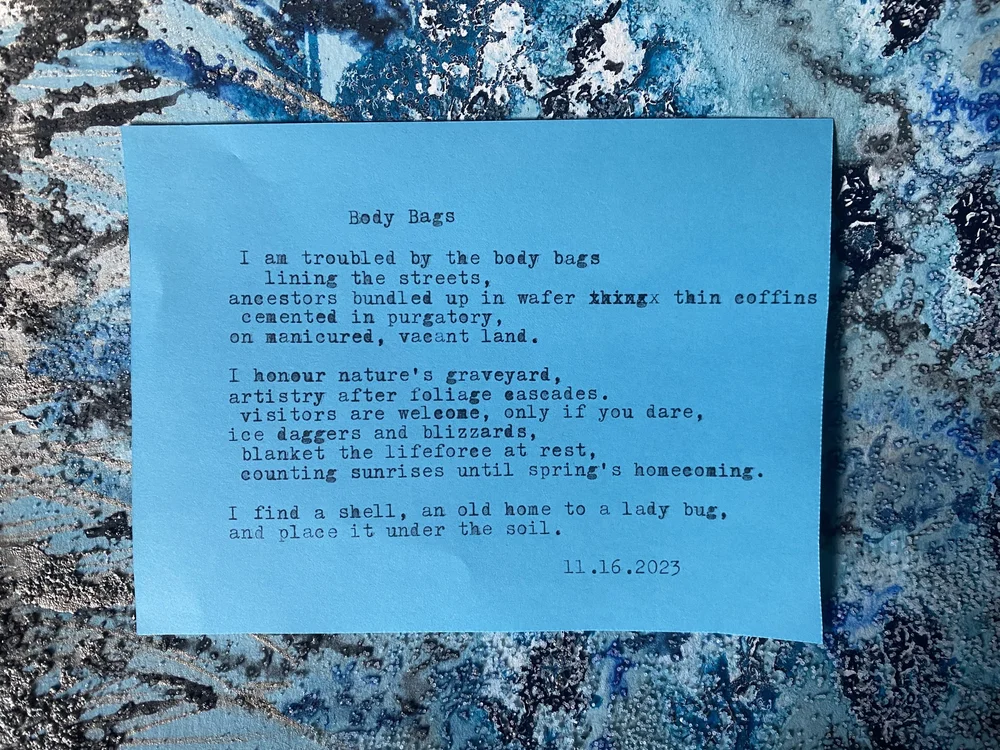 Body Bags
I am troubled by the body bags
lining the streets,
ancestors bundled up in wafer thin coffins
cemented in purgatory,
on manicured, vacant land.
I honour nature's graveyard,
artistry after foliage cascades.
visitors are welcome, only if you dare,
ice daggers and blizzards,
blanket the lifeforce at rest,
counting sunrises until spring's homecoming.
I find a shell, an old home to a lady bug,
and place it under the soil.
11.16.2023